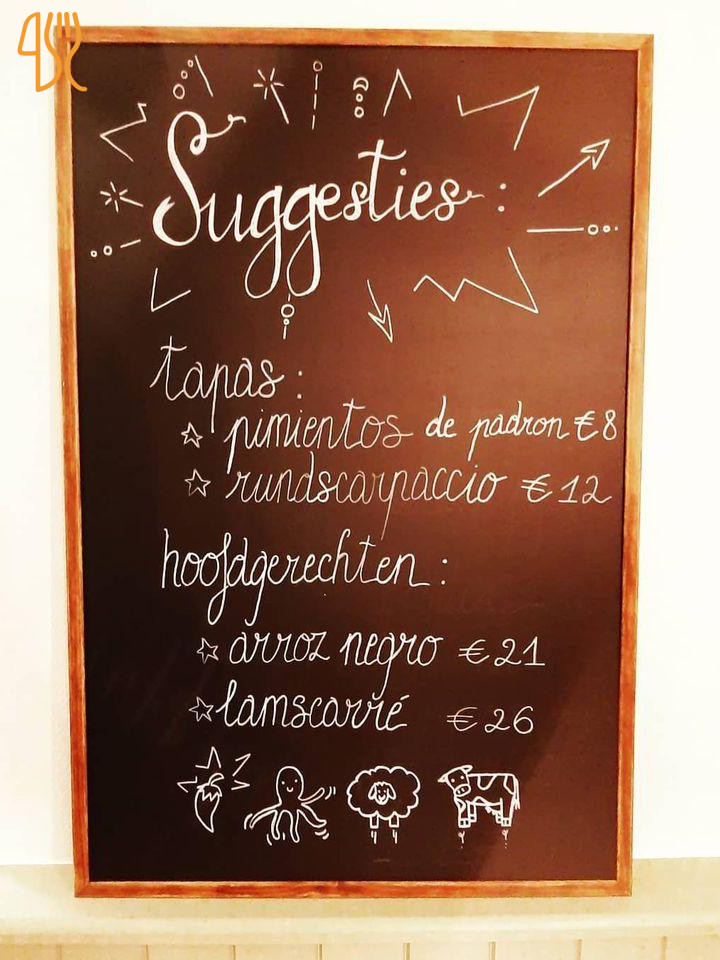 Suggesties:
tapas:
☆ pimientos de padron €8
☆ rundscarpaccio €12
hoofdgerechten:
☆ arroz negro €21
☆ lamscarré €26